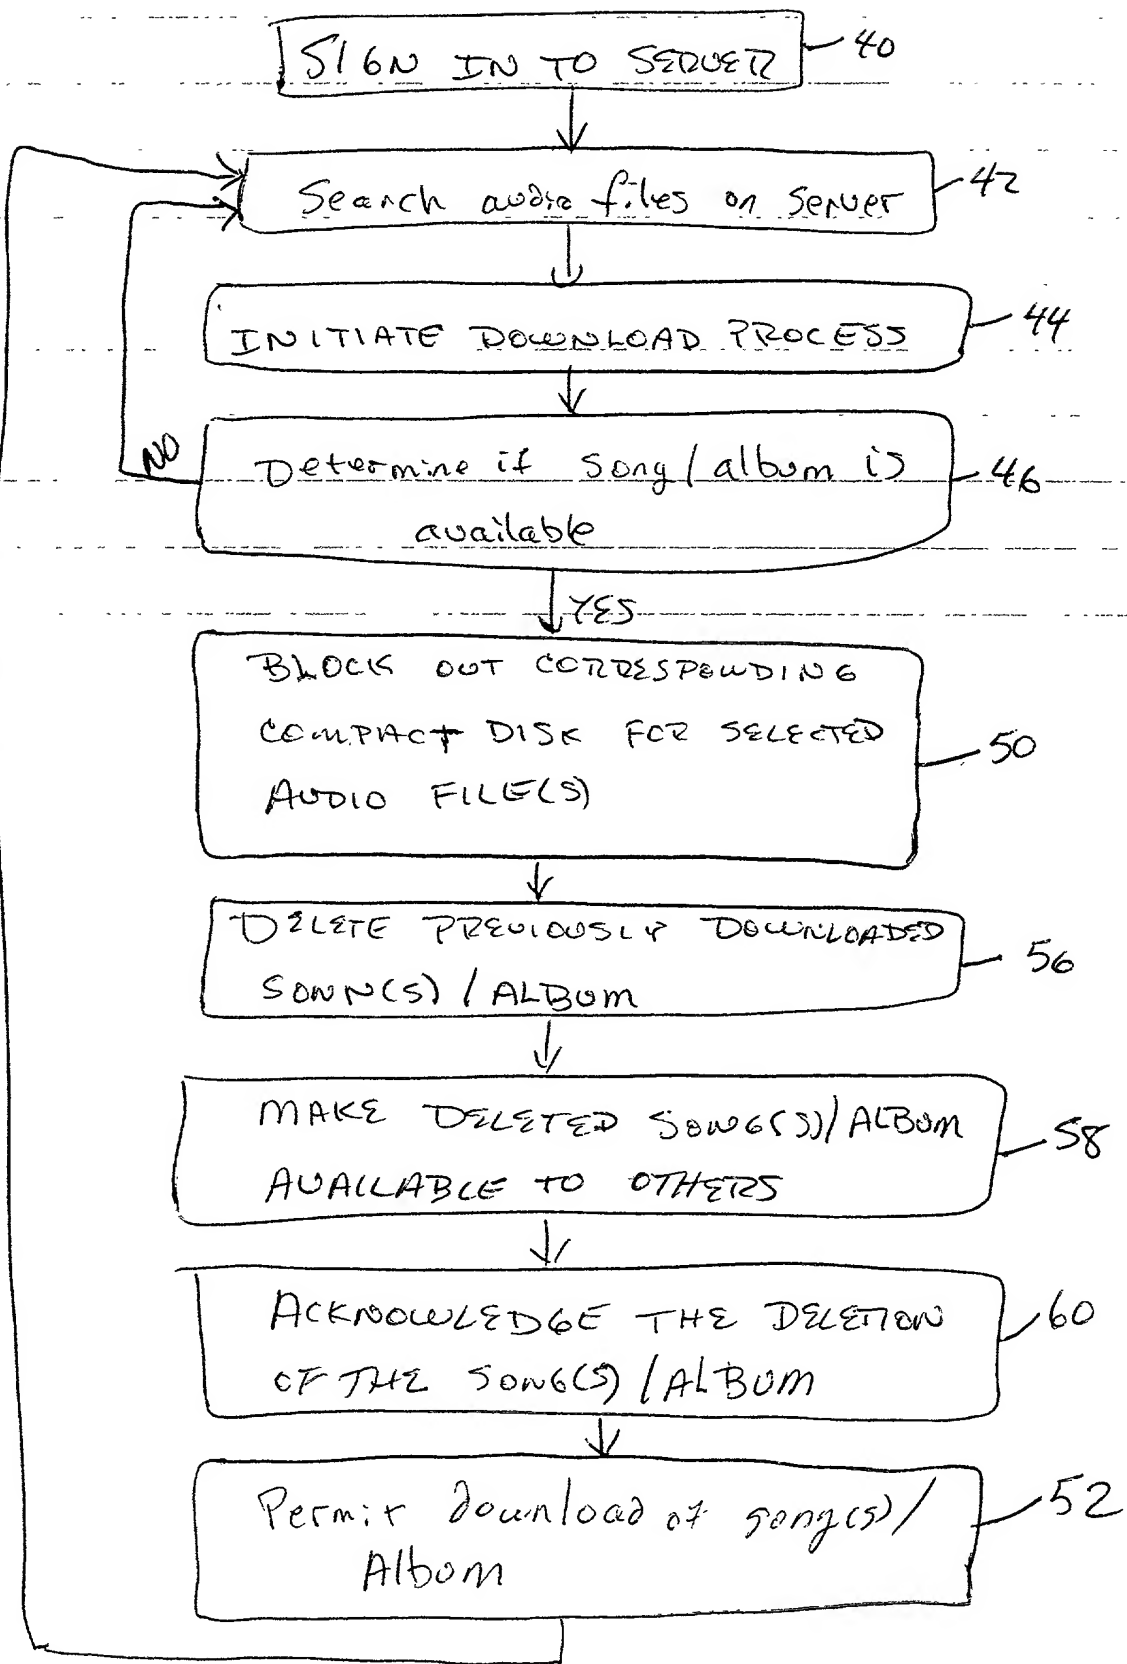 SIGN IN TO SERVER 40
Search audio files on server 42
INITIATE DOWNLOAD PROCESS 44
NO
Determine if song/album is 46
available
YES
BLOCK OUT CORRESPONDING
COMPACT DISK FOR SELECTED 50
AUDIO FILE(S)
DELETE PREVIOUSLY DOWNLOADED
SONN(S) / ALBUM 56
MAKE DELETED SONG(S)/ALBUM 58
AVAILABLE TO OTHERS
ACKNOWLEDGE THE DELETION 60
OF THE SONG(S) / ALBUM
Permit download of song(s)/ 52
Album